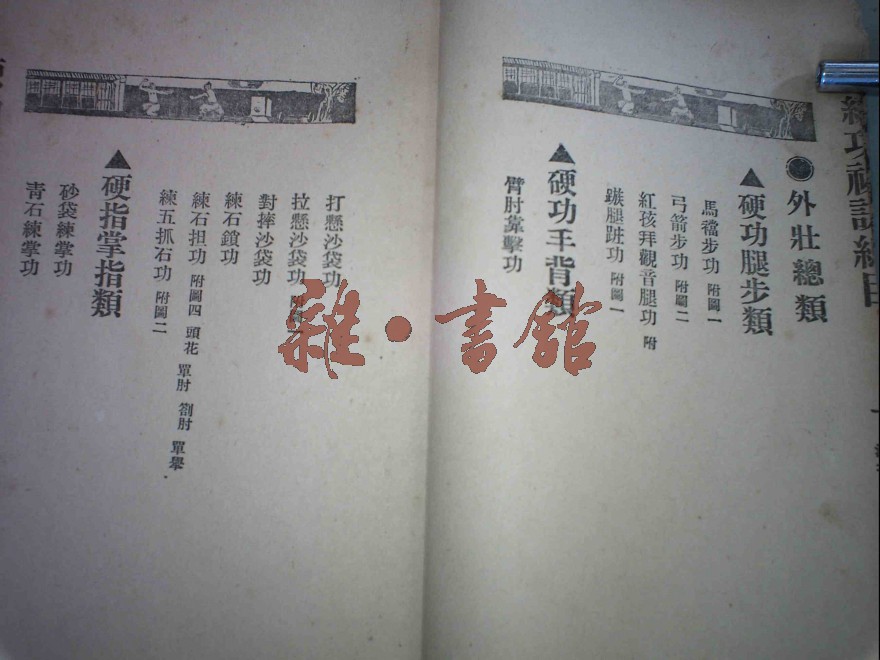 練功秘訣總目
●外壯總類
▲硬功腿步類
馬襠步功 附圖一
弓箭步功 附圖二
紅孩拜觀音腿功 附
踢腿跐功 附圖一
▲硬功手背類
臂肘靠擊功
打懸沙袋功
拉懸沙袋功 附圖
對摔沙袋功
練石鎖功
練石担功 附圖四 頭花 單肘 劄肘 單舉
練五抓石功 附圖二
▲硬指掌指類
砂袋練掌功
青石練掌功
雜·書館